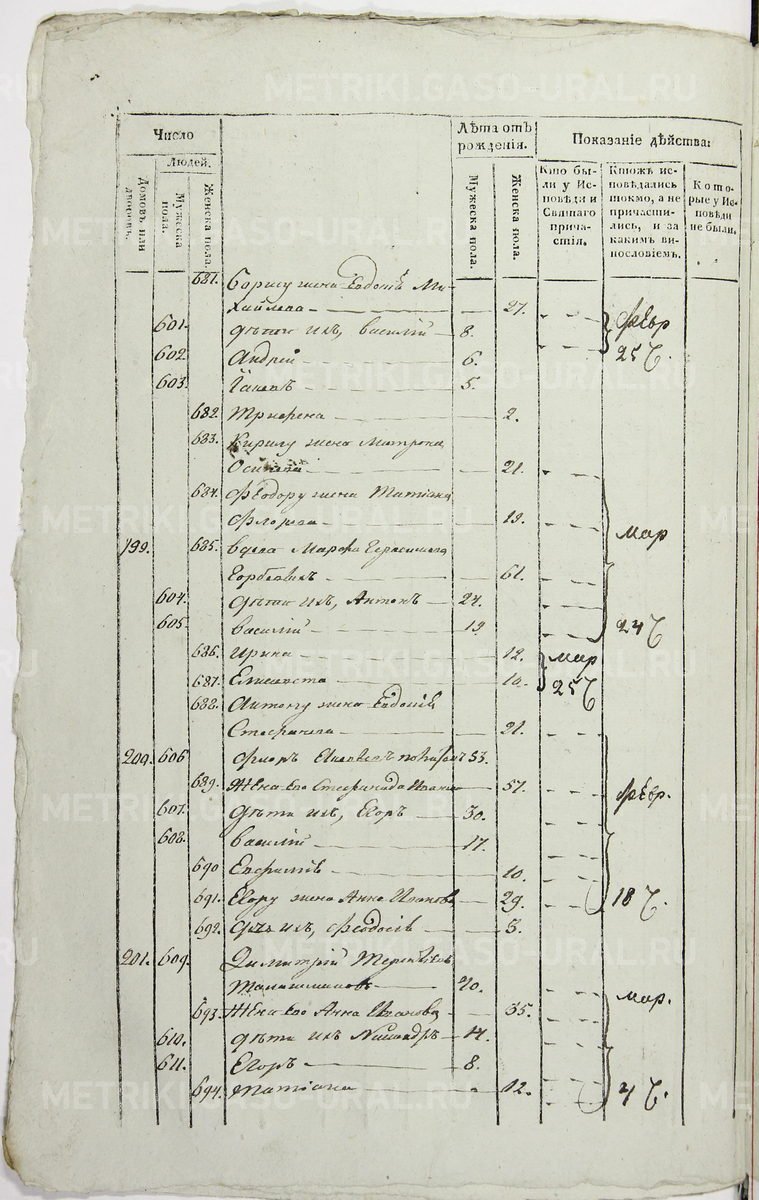 Число
Лѣта отъ рожденія.
Показаніе дѣйства:
Людей.
Домовъ или дворовъ.
Мужеска пола.
Женска пола.
Мужеска пола.
Женска пола.
Кто были у Исповѣди и Святаго причастія.
Ктожъ исповѣдались токмо, а не причастились, и за какимъ винословіемъ.
Которые у Исповѣди не были.
681. Борису жена Евдокія Ми-
хайлова 27.
601. дѣти ихъ, Василій 8. февр
602. Андрей 6. 25
603. Іаковъ 5.
682. 2.
683. Кирилу жена Матрона
21.
684. Феодору жена Татіана
Флорова 19.
199. 685. вдова Марфа Герасимова мар
61.
604. дѣти ихъ, Антонъ 24.
605. Василій 19 24
686. Ирина 12. мар
687. Елисавета 10. 25
688. Антону жена Евдокія
Стефанова 21.
200. 606 Флоръ 53.
689. Жена его Стефанида 57. февр.
607. дѣти ихъ, Егоръ 30.
608. Василій 17.
690 10.
691. Егору жена Анна Иванова 29. 18
692. ихъ, Феодосія 3.
201. 609. Димитрій Терентьевъ
40. мар.
693. Жена его Анна Иванова 35.
610. дѣти ихъ 14.
611. Егоръ 8.
694. Татіана 12. 4
METRIKI.GASO-URAL.RU